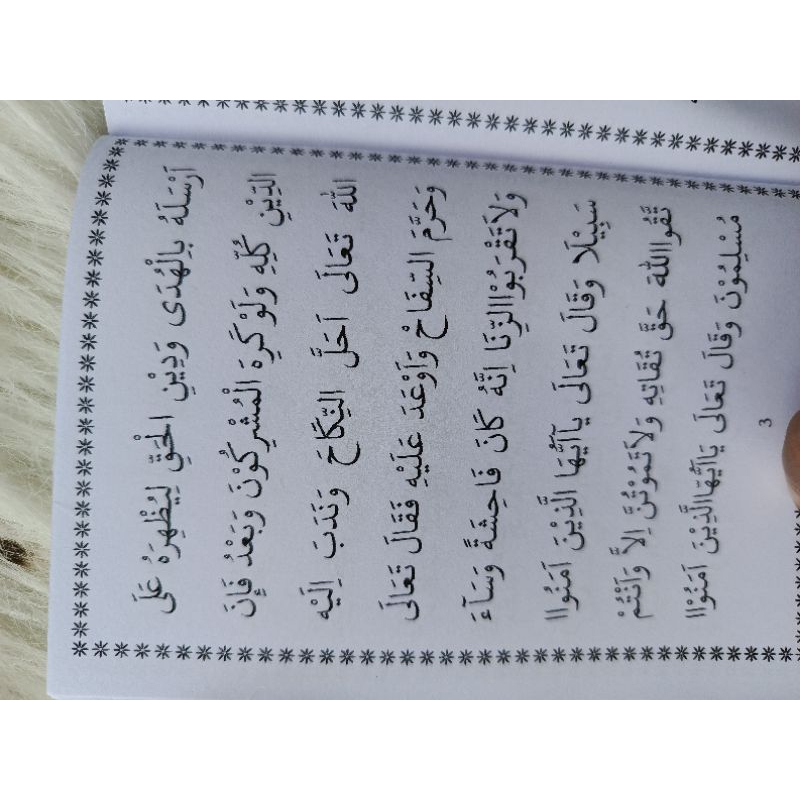 اَرْسَلَهُ بِالْهُدَى وَدِيْنِ الْحَقِّ لِيُظْهِرَهُ عَلَى
الدِّيْنِ كُلِّهِ وَلَوْ كَرِهَ الْمُشْرِكُوْنَ وَبَعْدُ فَإِنَّ
اللهَ تَعَالَى اَحَلَّ النِّكَاحَ وَنَدَبَ اِلَيْهِ
وَحَرَّمَ السِّفَاحَ وَاَوْعَدَ عَلَيْهِ فَقَالَ تَعَالَى
وَلَاتَقْرَبُوْاالزِّنَا اِنَّهُ كَانَ فَاحِشَةً وَسَآءَ
سَبِيْلًا وَقَالَ تَعَالَى يَاآيُّهَا الَّذِيْنَ آمَنُوْا
تَّقُوااللهَ حَقَّ تُقَاتِهِ وَلَاتَمُوْتُنَّ اِلاَّ وَاَنْتُمْ
مُسْلِمُوْنَ وَقَالَ تَعَالَى يَاآيُّهَاالَّذِيْنَ آمَنُوْا
3